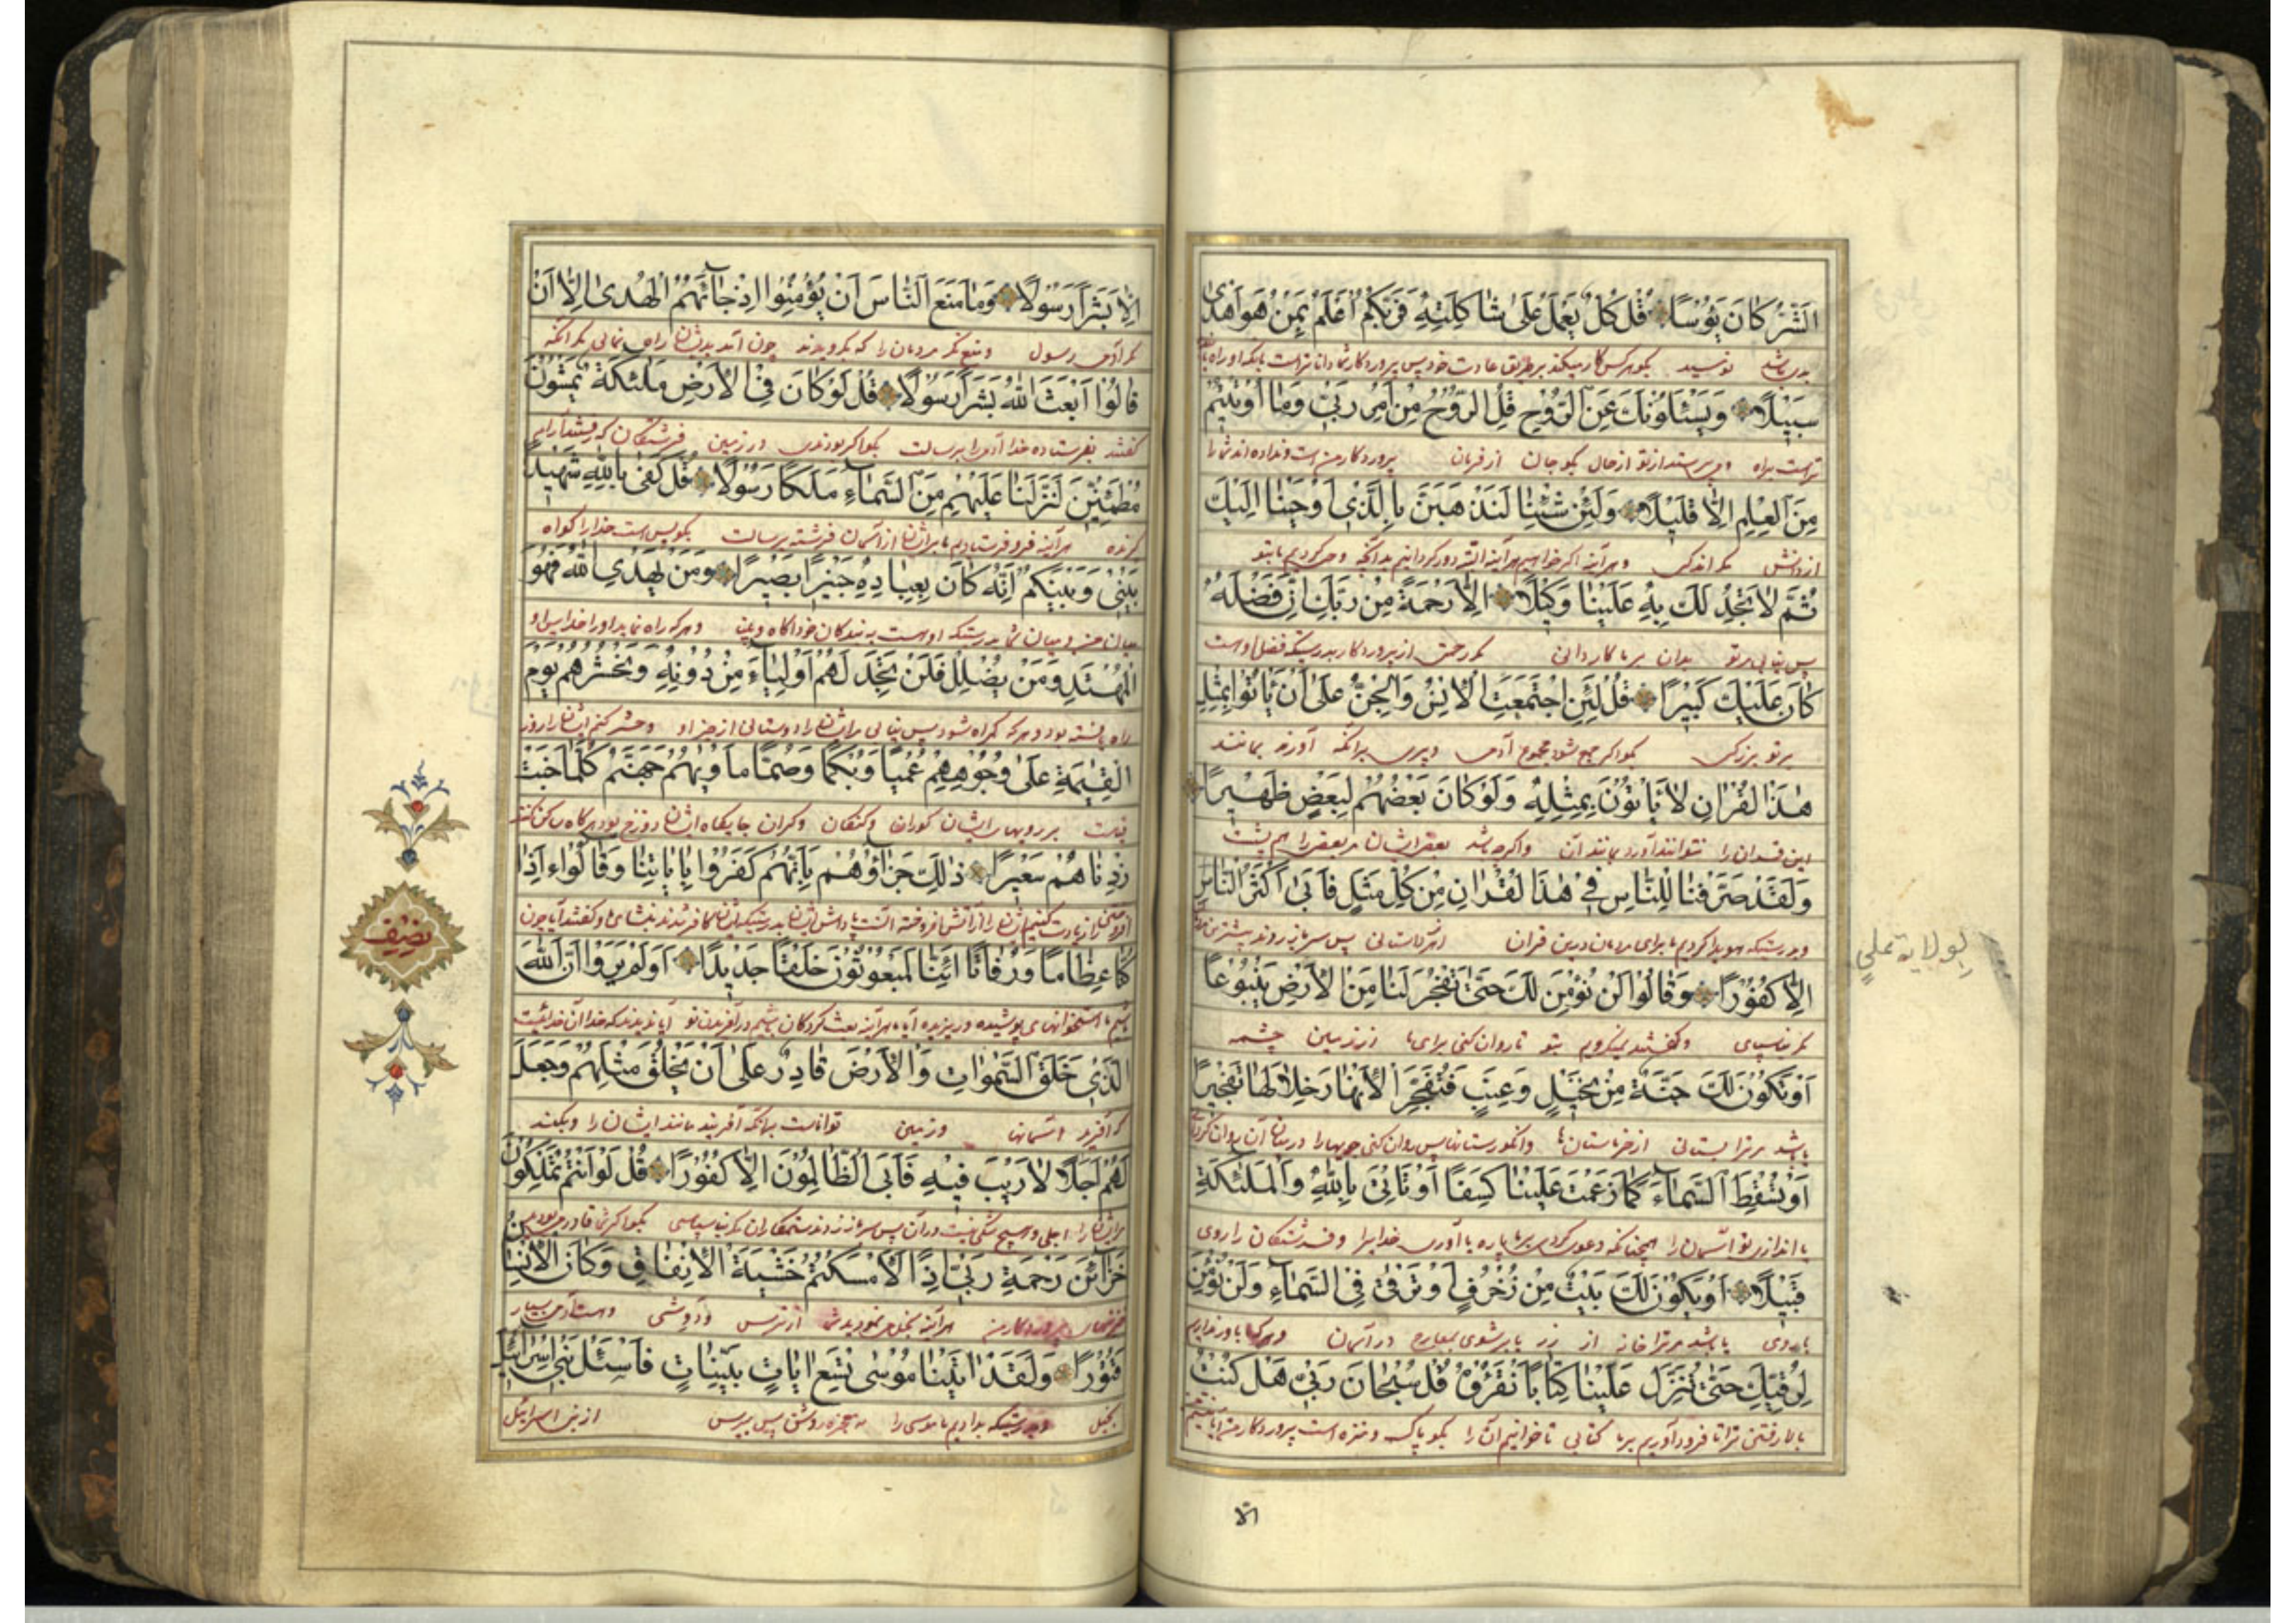 الشَّرُّ كَانَ يَؤُسًا قُلْ كُلٌّ يَعْمَلُ عَلٰى شَاكِلَتِهِ فَرَبُّكُمْ أَعْلَمُ بِمَنْ هُوَ أَهْدٰى
نومید بگو هرکس کار میکند بر طریق عادت خود پس پروردکار شما داناتر است بانکه او راه
سَبِيلًا وَيَسْئَلُونَكَ عَنِ الرُّوحِ قُلِ الرُّوحُ مِنْ أَمْرِ رَبِّي وَمَا أُوتِيتُمْ
براه و میپرسند از تو از حال بگو جان از فرمان پروردکار من است و نداده اند شما را
مِنَ الْعِلْمِ إِلَّا قَلِيلًا وَلَئِنْ شِئْنَا لَنَذْهَبَنَّ بِالَّذِي أَوْحَيْنَا إِلَيْكَ
از دانش مکر اندکی و هرآینه اکر خواهیم هرآینه البته دور کردانیم بدانچه وحی کردیم بتو
ثُمَّ لَا تَجِدُ لَكَ بِهِ عَلَيْنَا وَكِيلًا إِلَّا رَحْمَةً مِنْ رَبِّكَ إِنَّ فَضْلَهُ
پس نیابی برتو بدان بر ما کاردانی مکر رحمتی از پروردکار بدرستیکه فضل اوست
كَانَ عَلَيْكَ كَبِيرًا قُلْ لَئِنِ اجْتَمَعَتِ الْإِنْسُ وَالْجِنُّ عَلٰى أَنْ يَأْتُوا بِمِثْلِ
بر تو بزرک بگو اکر جمع شوند مجموع آدمی و پری برانکه آورند بمانند
هٰذَا الْقُرْاٰنِ لَا يَأْتُونَ بِمِثْلِهِ وَلَوْ كَانَ بَعْضُهُمْ لِبَعْضٍ ظَهِيرًا
این قرآن را نتوانند آورد مانند آن و اکرچه باشد بعض ایشان مر بعض را هم پشت
وَلَقَدْ صَرَّفْنَا لِلنَّاسِ فِي هٰذَا الْقُرْاٰنِ مِنْ كُلِّ مَثَلٍ فَأَبٰى أَكْثَرُ النَّاسِ
و بدرستیکه هویدا کردیم ما برای مردمان درین قران از هر داستانی پس سرباز زدند بیشترین
لولایة علي
إِلَّا كُفُورًا وَقَالُوا لَنْ نُؤْمِنَ لَكَ حَتَّى تَفْجُرَ لَنَا مِنَ الْأَرْضِ يَنْبُوعًا
مکر ناسپاسی و کفتند نمیکرویم بتو تا روان کنی برای ما از زمین چشمه
أَوْ تَكُونَ لَكَ جَنَّةٌ مِنْ نَخِيلٍ وَعِنَبٍ فَتُفَجِّرَ الْأَنْهَارَ خِلَالَهَا تَفْجِيرًا
یا باشد مر ترا بستانی از خرماستان و انکورستان پس روان کنی جویها را در میان آن روان کردنی
أَوْ تُسْقِطَ السَّمَاءَ كَمَا زَعَمْتَ عَلَيْنَا كِسَفًا أَوْ تَأْتِيَ بِاللّٰهِ وَالْمَلٰئِكَةِ
یا اندازی تو آسمان را همچنانکه دعوی کردی بر ما پاره یا آوری خدا را و فرشتکان را روی
قَبِيلًا أَوْ يَكُونَ لَكَ بَيْتٌ مِنْ زُخْرُفٍ أَوْ تَرْقٰى فِي السَّمَاءِ وَلَنْ نُؤْمِنَ
یا باشد مر ترا خانه از زر یا بر شوی در آسمان
لِرُقِيِّكَ حَتَّى تُنَزِّلَ عَلَيْنَا كِتَابًا نَقْرَؤُهُ قُلْ سُبْحَانَ رَبِّي هَلْ كُنْتُ
بالا رفتن ترا تا فرود آوری بر ما کتابی تا خوانیم آن را بگو پاک و منزه است پروردکار من
الّا
إِلَّا بَشَرًا رَسُولًا وَمَا مَنَعَ النَّاسَ أَنْ يُؤْمِنُوا إِذْ جَائَهُمُ الْهُدٰى إِلَّا أَنْ
مکر آدمی رسول و منع نکرد مردمان را که بکروند چون آمد بدیشان راه نمائی مکر آنکه
قَالُوا أَبَعَثَ اللّٰهُ بَشَرًا رَسُولًا قُلْ لَوْ كَانَ فِي الْأَرْضِ مَلٰئِكَةٌ يَمْشُونَ
کفتند بفرستاده خدا آدمی را برسالت بگو اکر بودندی در زمین فرشتکان که رفتندی
مُطْمَئِنِّينَ لَنَزَّلْنَا عَلَيْهِمْ مِنَ السَّمَاءِ مَلَكًا رَسُولًا قُلْ كَفٰى بِاللّٰهِ شَهِيدًا
هرآینه فرو فرستادیم ما بر ایشان از آسمان فرشته برسالت بگو بس است خدا را کواه
بَيْنِي وَبَيْنَكُمْ إِنَّهُ كَانَ بِعِبَادِهِ خَبِيرًا بَصِيرًا وَمَنْ يَهْدِي اللّٰهُ فَهُوَ
میان من و میان شما بدرستیکه اوست به بندکان خود آکاه و بینا و هر که راه نماید او را خدا پس او
الْمُهْتَدِ وَمَنْ يُضْلِلْ فَلَنْ تَجِدَ لَهُمْ أَوْلِيَاءَ مِنْ دُونِهِ وَنَحْشُرُهُمْ يَوْمَ
راه یافته بود و هر که کمراه شود پس نیابی مر ایشان را دوستانی از جز او و حشر کنیم ایشان را روز
الْقِيٰمَةِ عَلٰى وُجُوهِهِمْ عُمْيًا وَبُكْمًا وَصُمًّا مَأْوٰيهُمْ جَهَنَّمُ كُلَّمَا خَبَتْ
قیامت بر رویهای ایشان کوران و کنکان و کران جایکاه ایشان دوزخ بود هرکاه
زِدْنَاهُمْ سَعِيرًا ذٰلِكَ جَزَاؤُهُمْ بِأَنَّهُمْ كَفَرُوا بِاٰيَاتِنَا وَقَالُوا ءَإِذَا
كُنَّا عِظَامًا وَرُفَاتًا أَئِنَّا لَمَبْعُوثُونَ خَلْقًا جَدِيدًا أَوَلَمْ يَرَوْا أَنَّ اللّٰهَ
نصف
الَّذِي خَلَقَ السَّمٰوَاتِ وَالْأَرْضَ قَادِرٌ عَلٰى أَنْ يَخْلُقَ مِثْلَهُمْ وَجَعَلَ
که آفرید آسمانها و زمین تواناست برانکه آفریند مانند ایشان را و بکند
لَهُمْ أَجَلًا لَا رَيْبَ فِيهِ فَأَبَى الظَّالِمُونَ إِلَّا كُفُورًا قُلْ لَوْ أَنْتُمْ تَمْلِكُونَ
مر ایشان را اجلی و هیچ شکی نیست در آن پس سرباز زدند ستمکاران مکر ناسپاسی بگو اکر شما
خَزَائِنَ رَحْمَةِ رَبِّي إِذًا لَأَمْسَكْتُمْ خَشْيَةَ الْإِنْفَاقِ وَكَانَ الْإِنْسَانُ
پروردکار من هرآینه از ترس و درویشی و هست آدمی بسیار
قَتُورًا وَلَقَدْ اٰتَيْنَا مُوسٰى تِسْعَ اٰيَاتٍ بَيِّنَاتٍ فَاسْئَلْ بَنِي إِسْرَائِيلَ
بخیل و بدرستیکه بدادیم ما موسی را نه معجزه روشن پس بپرس از بنی اسرائیل